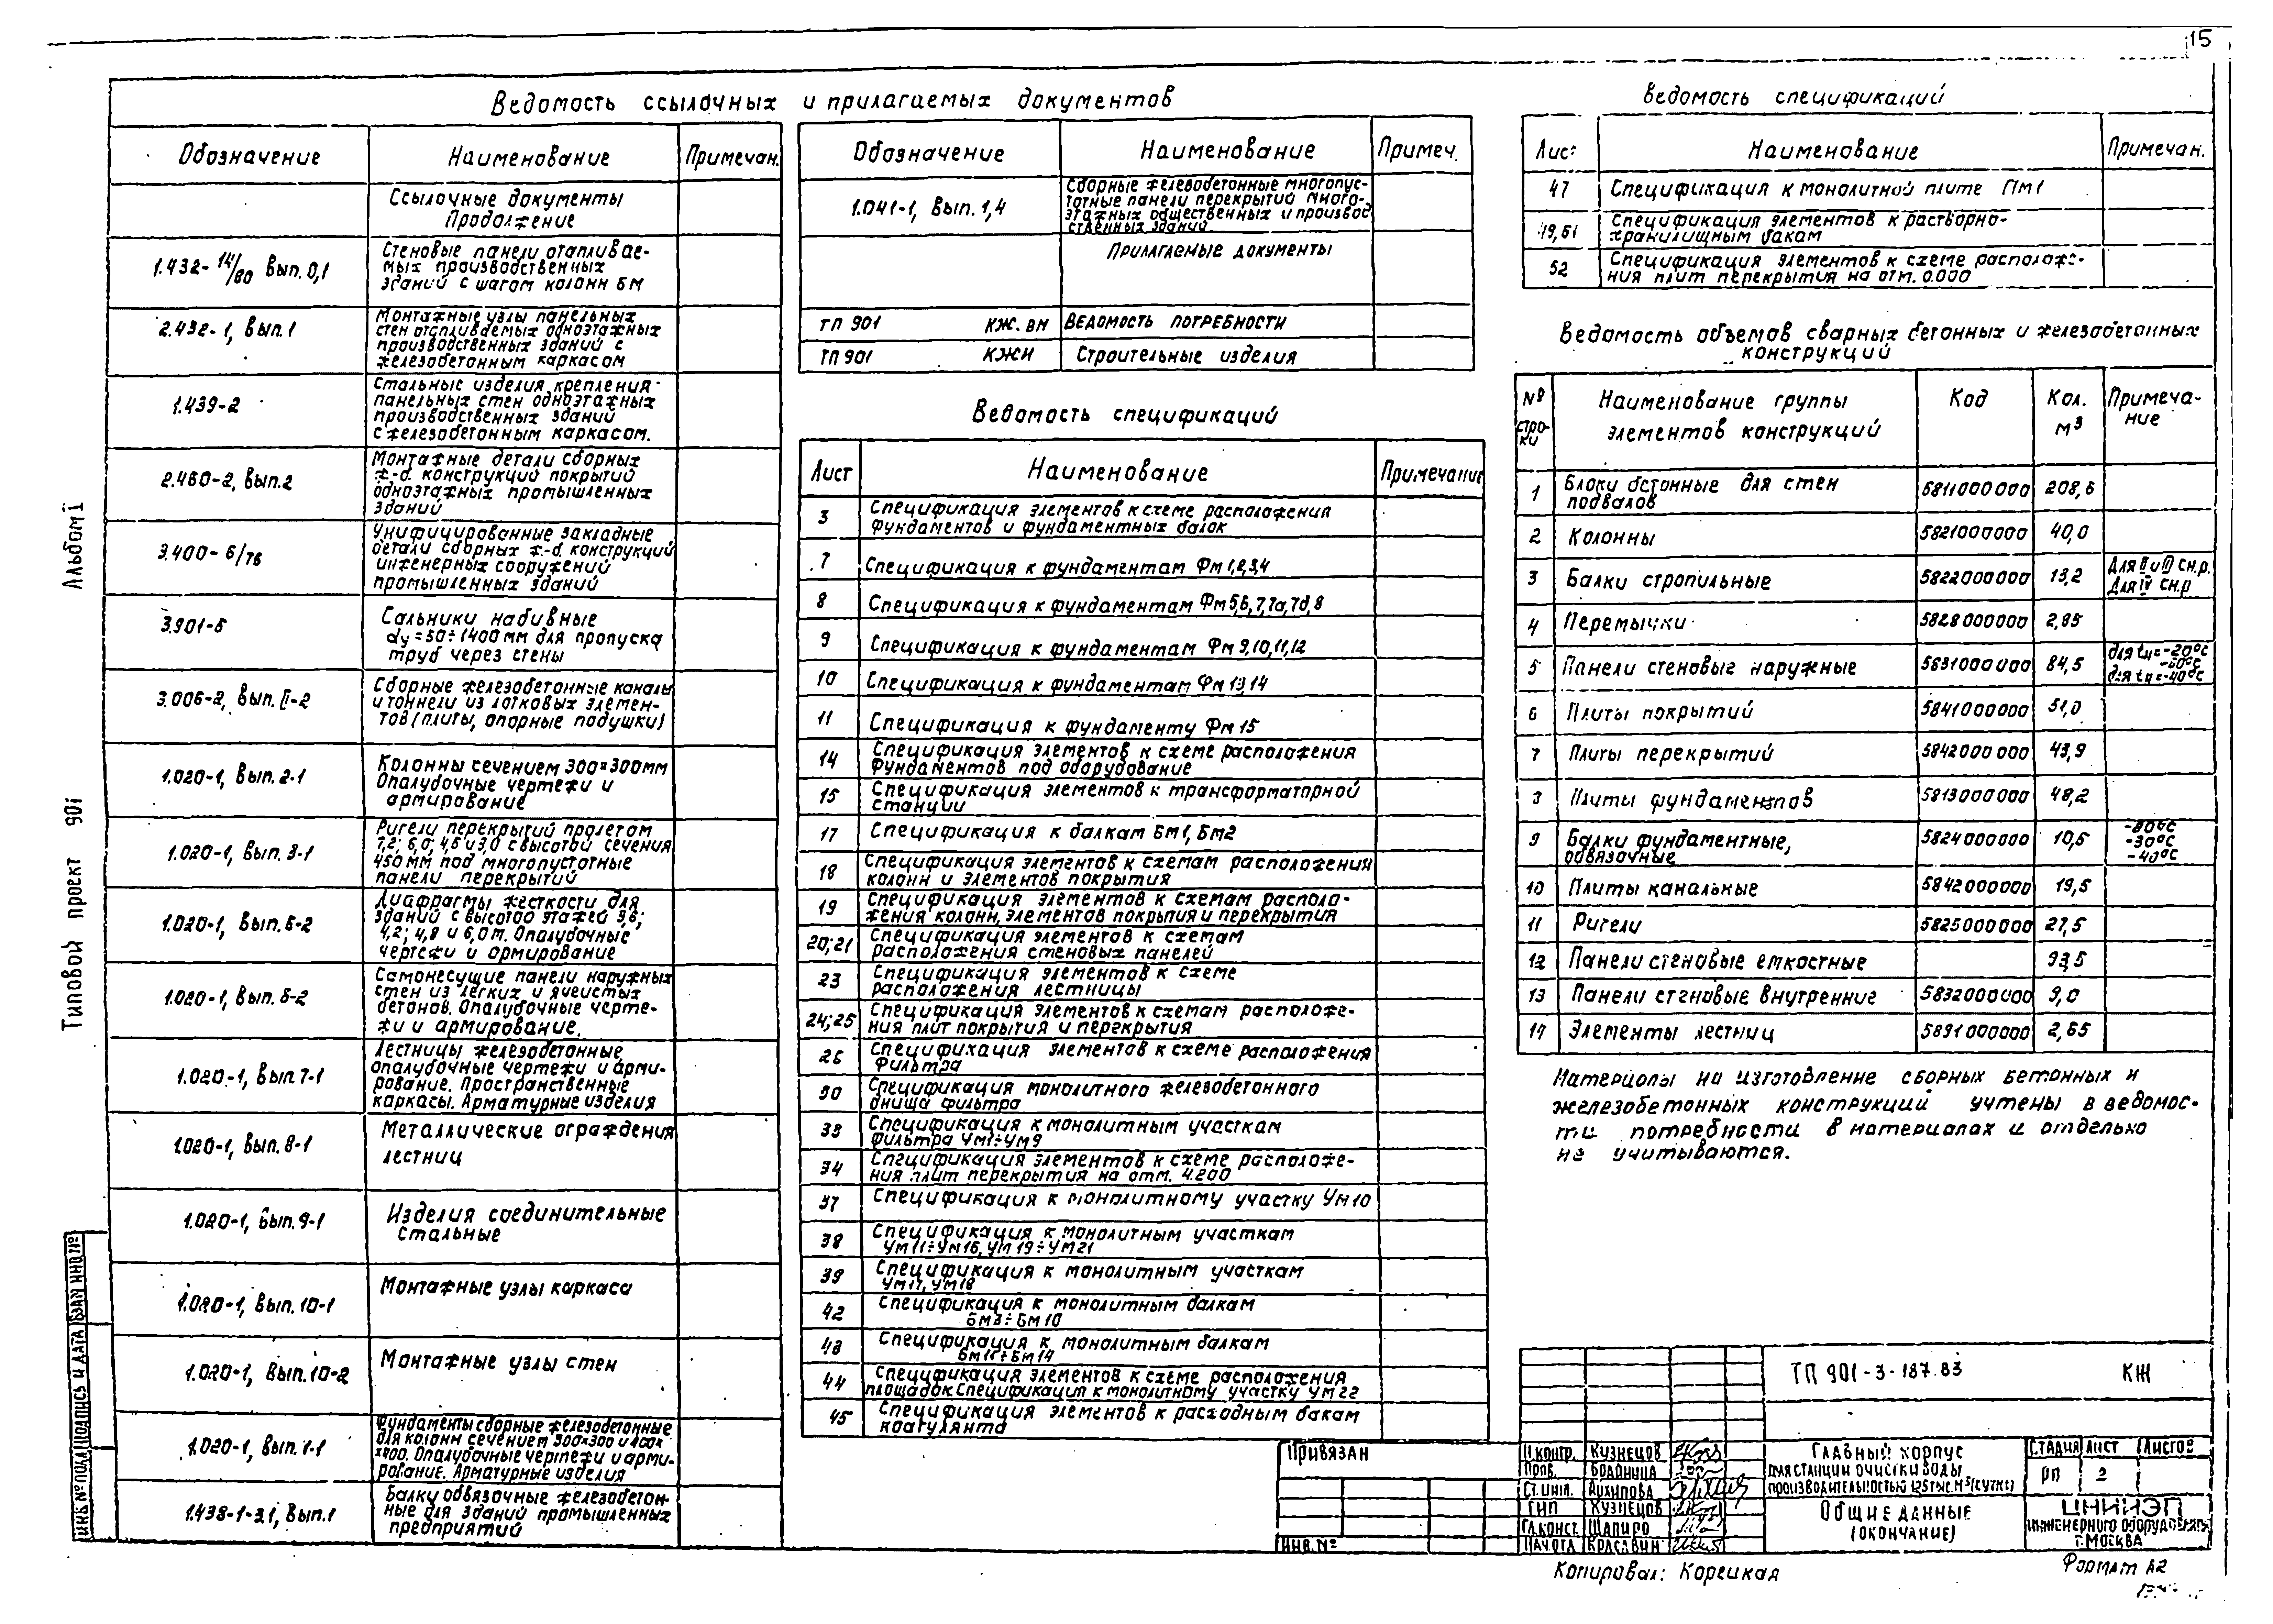 15
Ведомость ссылочных и прилагаемых документов
Обозначение
Наименование
Примечан.
Ссылочные документы
Продолжение
1.432-14/80 Вып. 0,1
Стеновые панели отапливае-
мых производственных
зданий с шагом колонн 6м
2.432-1, Вып.1
Монтажные узлы панельных
стен отапливаемых одноэтажных
производственных зданий с
железобетонным каркасом
1.439-2
Стальные изделия крепления
панельных стен одноэтажных
производственных зданий
с железобетонным каркасом.
2.460-2, Вып.2
Монтажные детали сборных
ж.-б. конструкций покрытий
одноэтажных промышленных
зданий
3.400-6/76
Унифицированные закладные
детали сборных ж.-б. конструкций
инженерных сооружений
промышленных зданий
3.901-5
Сальники набивные
dy=50÷1400мм для пропуска
труб через стены
3.006-2, Вып. II-2
Сборные железобетонные каналы
и тоннели из лотковых элемен-
тов (плиты, опорные подушки)
1.020-1, Вып. 2-1
Колонны сечением 300×300мм
Опалубочные чертежи и
армирование
1.020-1, Вып. 3-1
Ригели перекрытий пролетом
7,2; 6,0; 4,5 и 3,0 с высотой сечения
450мм под многопустотные
панели перекрытий
1.020-1, Вып. 6-2
Диафрагмы жесткости для
зданий с высотой этажей 3,6;
4,2; 4,8 и 6,0м. Опалубочные
чертежи и армирование
1.020-1, Вып. 8-2
Самонесущие панели наружных
стен из легких и ячеистых
бетонов. Опалубочные черте-
жи и армирование.
1.020-1, Вып. 7-1
Лестницы железобетонные
опалубочные чертежи и арми-
рование. Пространственные
каркасы. Арматурные изделия
1.020-1, Вып. 8-1
Металлические ограждения
лестниц
1.020-1, Вып. 9-1
Изделия соединительные
стальные
1.020-1, Вып. 10-1
Монтажные узлы каркаса
1.020-1, Вып. 10-2
Монтажные узлы стен
1.020-1, Вып. 1-1
Фундаменты сборные железобетонные
для колонн сечением 300×300 и 400×
×400. Опалубочные чертежи и арми-
рование. Арматурные изделия
1.438-1-3.1, Вып.1
Балки обвязочные железобетон-
ные для зданий промышленных
предприятий
Обозначение
Наименование
Примеч.
1.041-1, Вып. 1,4
Сборные железобетонные многопус-
тотные панели перекрытий много-
этажных общественных и производ
ственных зданий
Прилагаемые документы
ТП 901 КЖ. ВМ Ведомость потребности
ТП 901 КЖИ Строительные изделия
Ведомость спецификаций
Лист
Наименование
Примечание
3
Спецификация элементов к схеме расположения
фундаментов и фундаментных балок
7 Спецификация к фундаментам Фм 1,2,3,4
8 Спецификация к фундаментам Фм 5,6,7,7а,7б,8
9 Спецификация к фундаментам Фм 9,10,11,12
10 Спецификация к фундаментам Фм 13,14
11 Спецификация к фундаменту Фм 15
14
Спецификация элементов к схеме расположения
фундаментов под оборудование
15
Спецификация элементов к трансформаторной
станции
17 Спецификация к балкам Бм1, Бм2
18
Спецификация элементов к схемам расположения
колонн и элементов покрытия
19
Спецификация элементов к схемам располо-
жения колонн, элементов покрытия и перекрытия
20;21
Спецификация элементов к схемам
расположения стеновых панелей
23
Спецификация элементов к схеме
расположения лестницы
24;25
Спецификация элементов к схемам расположе-
ния плит покрытия и перекрытия
26
Спецификация элементов к схеме расположения
Фильтра
30
Спецификация монолитного железобетонного
днища фильтра
33
Спецификация к монолитным участкам
фильтра Ум1÷Ум9
34
Спецификация элементов к схеме расположе-
ния плит перекрытия на отм. 4.200
37 Спецификация к монолитному участку Ум 10
38
Спецификация к монолитным участкам
Ум11÷Ум16, Ум19÷Ум21
39
Спецификация к монолитным участкам
Ум17, Ум18
42
Спецификация к монолитным балкам
Бм3÷Бм10
43
Спецификация к монолитным балкам
Бм11÷Бм14
44
Спецификация элементов к схеме расположения
площадок. Спецификация к монолитному участку Ум 22
45
Спецификация элементов к расходным бакам
коагулянта
Ведомость спецификаций
Лист
Наименование
Примечан.
47 Спецификация к монолитной плите Пм1
49,51
Спецификация элементов к растворно-
хранилищным бакам
52
Спецификация элементов к схеме расположе-
ния плит перекрытия на отм. 0.000
Ведомость объемов сварных бетонных и железобетонных
конструкций
№ стро-ки
Наименование группы
элементов конструкций
Код
Кол. м³
Примеча-
ние
1 Блоки бетонные для стен
подвалов 5811000000 208,6
2 Колонны 5821000000 40,0
3 Балки стропильные 5822000000 13,2 Для II и III сн.р.
Для IV сн.р
4 Перемычки 5828000000 2,85
5 Панели стеновые наружные 5631000000 84,5 для tн=-20°С
-30°С
для tн=-40°С
6 Плиты покрытий 5841000000 51,0
7 Плиты перекрытий 5842000000 43,9
8 Плиты фундаментов 5813000000 48,2
9 Балки фундаментные,
обвязочные 5824000000 10,5 -20°С
-30°С
-40°С
10 Плиты канальные 5842000000 19,5
11 Ригели 5825000000 27,5
12 Панели стеновые емкостные 93,5
13 Панели стеновые внутренние 5832000000 9,0
14 Элементы лестниц 5891000000 2,65
Материалы на изготовление сборных бетонных и
железобетонных конструкций учтены в ведомос-
ти потребности в материалах и отдельно
не учитываются.
Альбом I
Типовой проект 901
Инв. № подл. Подпись и дата Взам. инв. №
ТП 901-3-187.83 КЖ
Привязан
Инв. №
Н.контр. Кузнецов
Пров. Бродинина
Ст.инж. Архипова
ГИП Кузнецов
Гл.конст. Шапиро
Нач.отд. Красавин
Главный корпус
для станции очистки воды
производительностью 125 тыс.м³/сутки
Стадия Лист Листов
РП 2
Общие данные
(окончание)
ЦНИИЭП
инженерного оборудования
г. Москва
Копировал: Корецкая
Формат А2